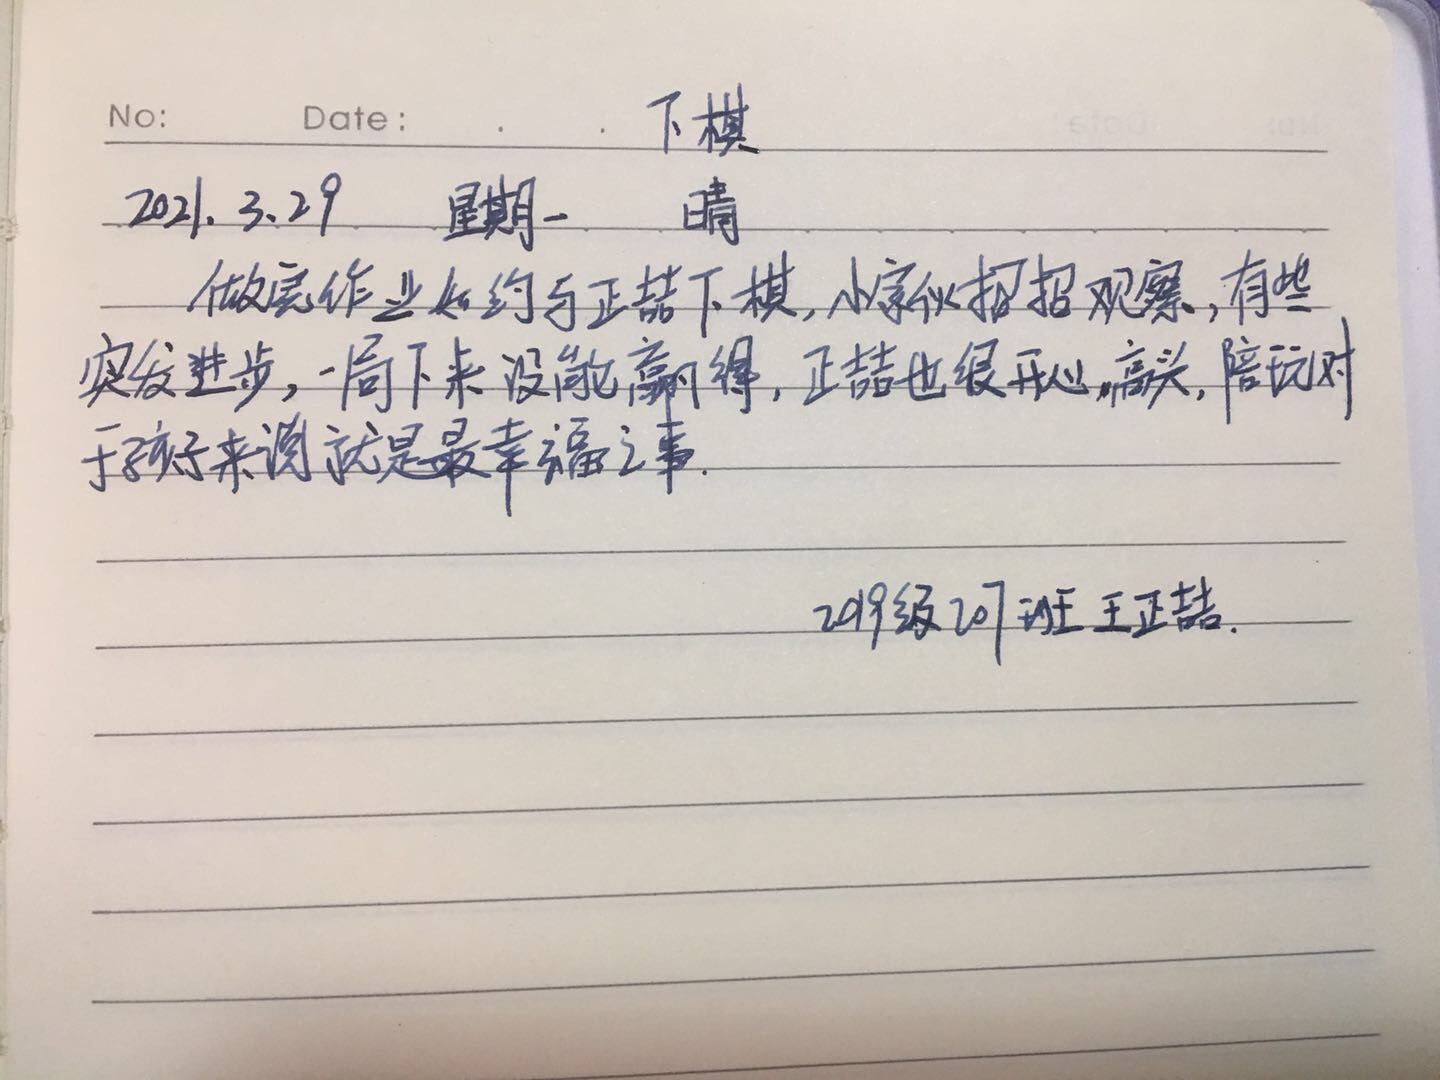 No: Date: . . 下棋
2021.3.29 星期一 晴
做完作业如约与正喆下棋,小家伙招招观察,有些
突发进步,一局下来没能赢得,正喆也很开心,高头,陪玩对
于孩子来说就是最幸福之事.
2019级207班王正喆.